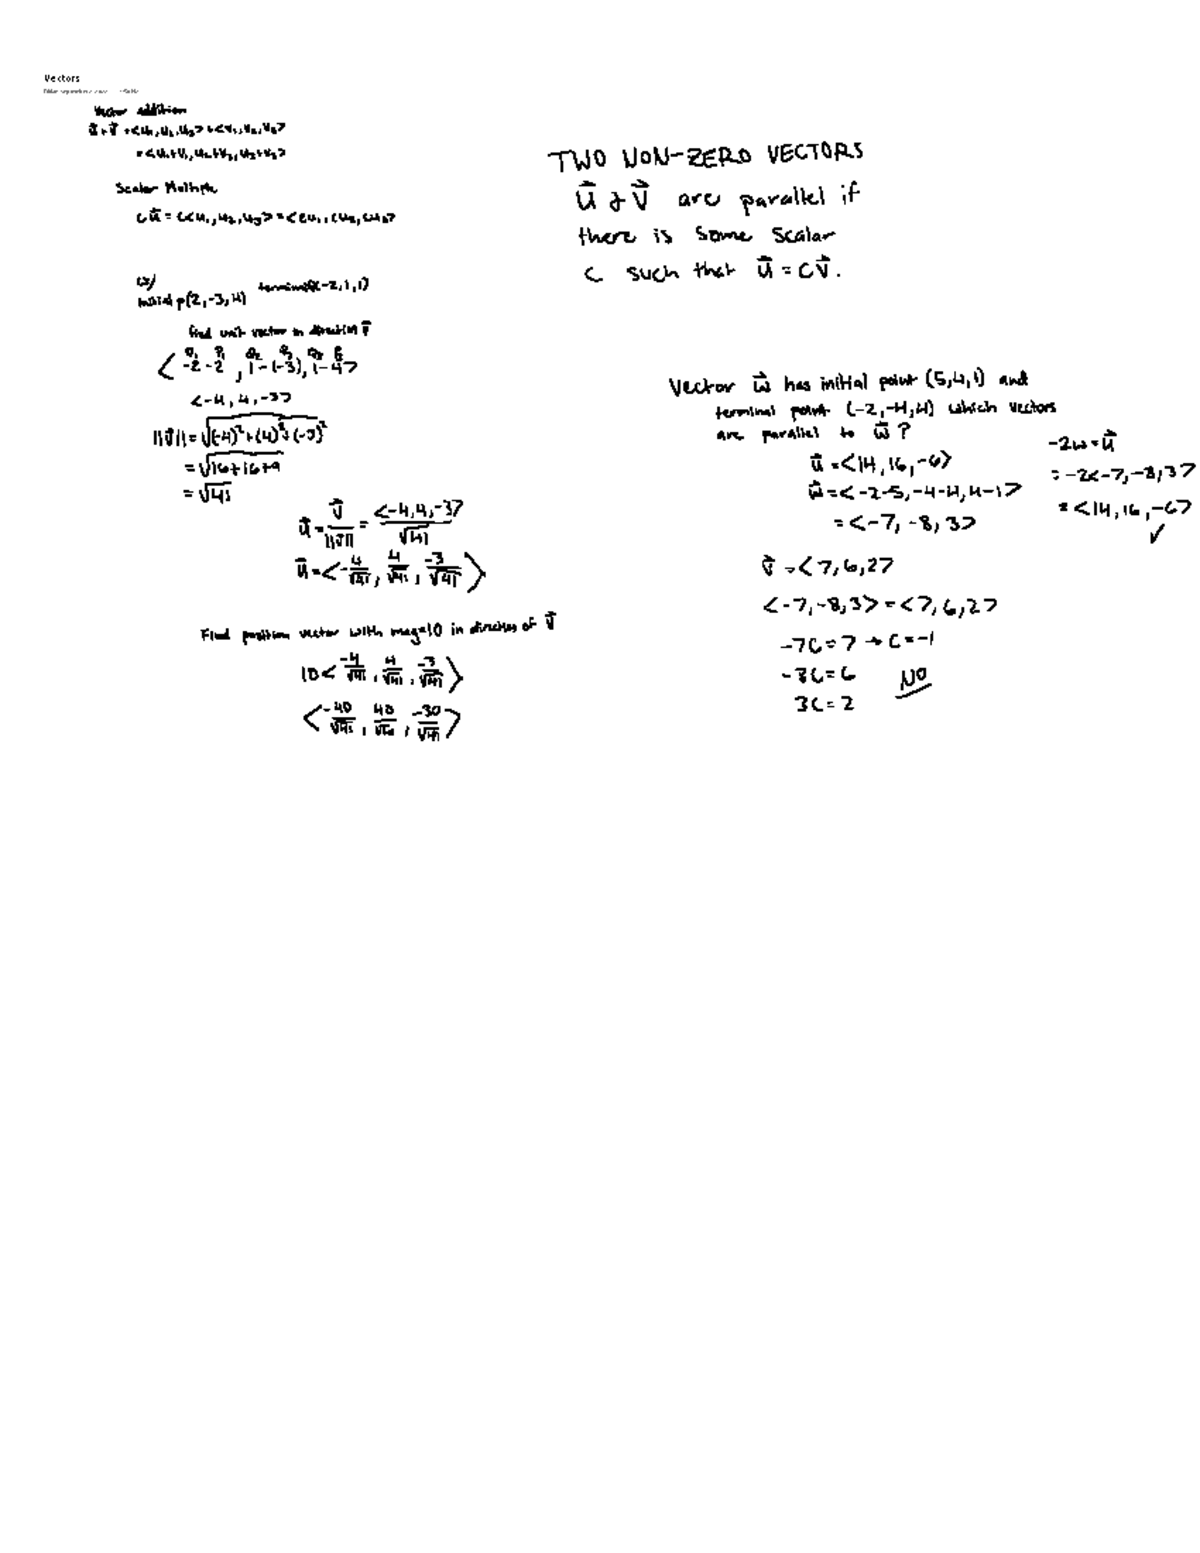 Vectors
Vector addition
u⃗+v⃗ = <u₁,u₂,u₃> + <v₁,v₂,v₃>
= <u₁+v₁, u₂+v₂, u₃+v₃>
Scalar Multiple
cu⃗ = c<u₁, u₂, u₃> = <cu₁, cu₂, cu₃>
initial p(2,-3,4) terminal (-2,1,1)
find unit vector in direction v⃗
<-2-2, 1-(-3), 1-4>
<-4, 4, -3>
||v⃗|| = √(-4)²+(4)²+(-3)²
= √16+16+9
= √41
u⃗ = v⃗/||v⃗|| = <-4,4,-3>/√41
u⃗ = <-4/√41, 4/√41, -3/√41>
Find position vector with mag=10 in direction of v⃗
10<-4/√41, 4/√41, -3/√41>
<-40/√41, 40/√41, -30/√41>
TWO NON-ZERO VECTORS
u⃗ & v⃗ are parallel if
there is some scalar
c such that u⃗ = cv⃗.
Vector w⃗ has initial point (5,4,1) and
terminal point (-2,-4,4) which vectors
are parallel to w⃗?
u⃗ = <14, 16, -6>
w⃗ = <-2-5, -4-4, 4-1>
= <-7, -8, 3>
-2w = u⃗
= -2<-7, -8, 3>
= <14, 16, -6>
✓
v⃗ = <7,6,2>
<-7,-8,3> = <7,6,2>
-7c = 7 → c = -1
-8c = 6 NO
3c = 2